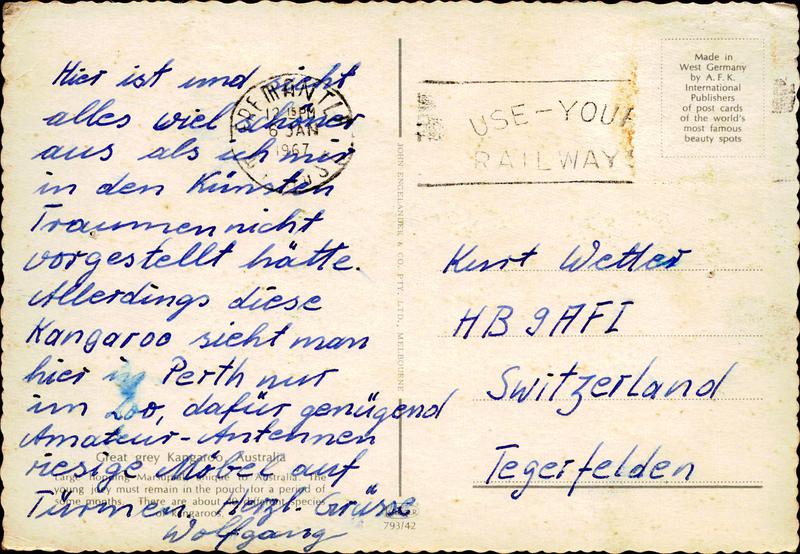 Hier ist und sieht
alles viel schöner
aus als ich mir
in den Künsten
Traumen nicht
vorgestellt hätte.
Allerdings diese
Kangaroo sieht man
hier in Perth nur
im Zoo, dafür genügend
Amateur-Antennen
riesige Möbel auf
Türmen. Herzl. Grüsse
Wolfgang
Great grey Kangaroo, Australia
Large hopping Marsupial unique to Australia. The
young joey must remain in the pouch for a period of
some months. There are about species
of kangaroos.
FREMANTLE
12 15 PM
6 JAN
1967
USE-YOUR
RAILWAYS
Made in
West Germany
by A. F. K.
International
Publishers
of post cards
of the world's
most famous
beauty spots
JOHN ENGELANDER & CO. PTY. LTD., MELBOURNE
Kurt Wetter
HB9AFI
Switzerland
Tegerfelden
793/42